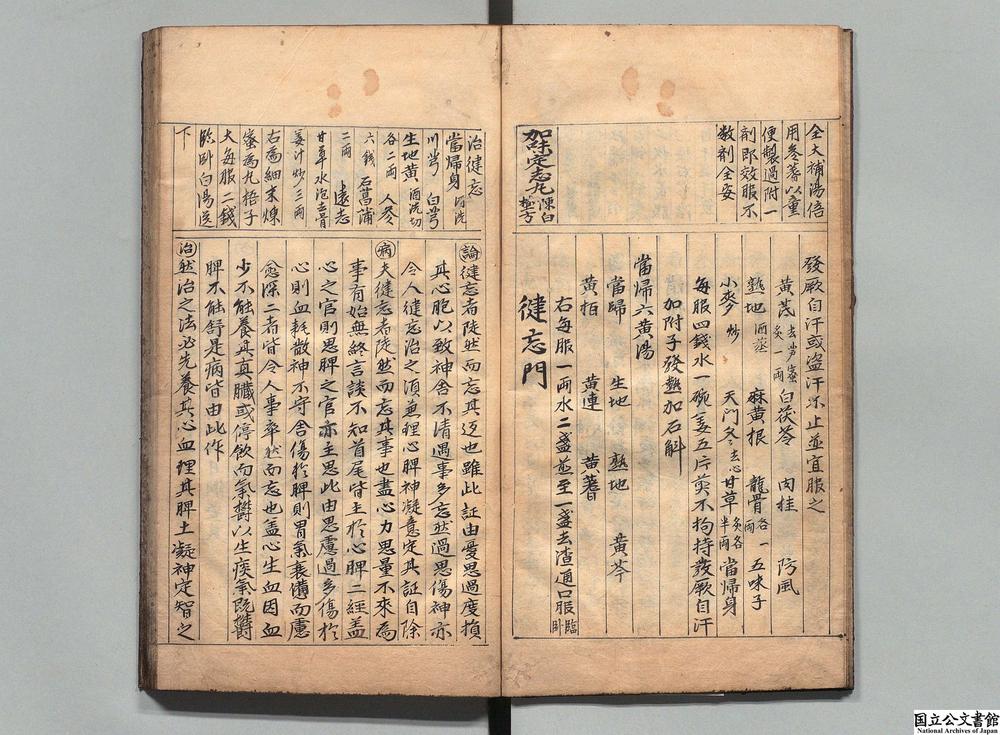 全大補湯倍
用參蓍以童
便製過附一
劑即效服不
數劑全安
加味定志丸陳白極方
發厥自汗或盜汗不止並宜服之
黃芪去芦蜜炙一兩 白茯苓 肉桂 防風
熟地酒蒸 麻黃根 龍骨各一兩 五味子
小麥炒 天門冬去心 甘草炙各半兩 當歸身
每服四錢水一碗姜五片煎不拘持發厥自汗
加附子發熱加石斛
當帰六黃湯
當歸 生地 熟地 黃芩
黃柏 黃連 黃蓍
右每服一兩水二盞煎至一盞去渣通口服臨卧
健忘門
治健忘
當帰身酒洗
川芎 白芍
生地黃酒洗切
各二兩 人參
六錢 石菖蒲
二兩 遠志
甘草水泡去骨
姜汁炒二兩
右為細末煉
蜜為丸梧子
大每服二錢
臨卧白湯送
下
論健忘者陡然而忘其迈也雖此証由憂思過度損
其心胞以致神舍不清遇事多忘然過思傷神亦
令人健忘治之須兼理心脾神凝意定其証自除
病夫健忘者陡然而忘其事也盡心力思量不來為
事有始無終言談不知首尾皆主於心脾二經盖
心之官則思脾之官亦主思此由思慮過多傷於
心則血耗散神不守舍傷於脾則胃氣衰憊而慮
愈深二者皆令人事卒然而忘也盖心生血因血
少不能養其真臟或停飲而氣欝以生痰氣既欝
脾不能舒是病皆由此作
治然治之法必先養其心血理其脾土凝神定智之
国立公文書館
National Archives of Japan